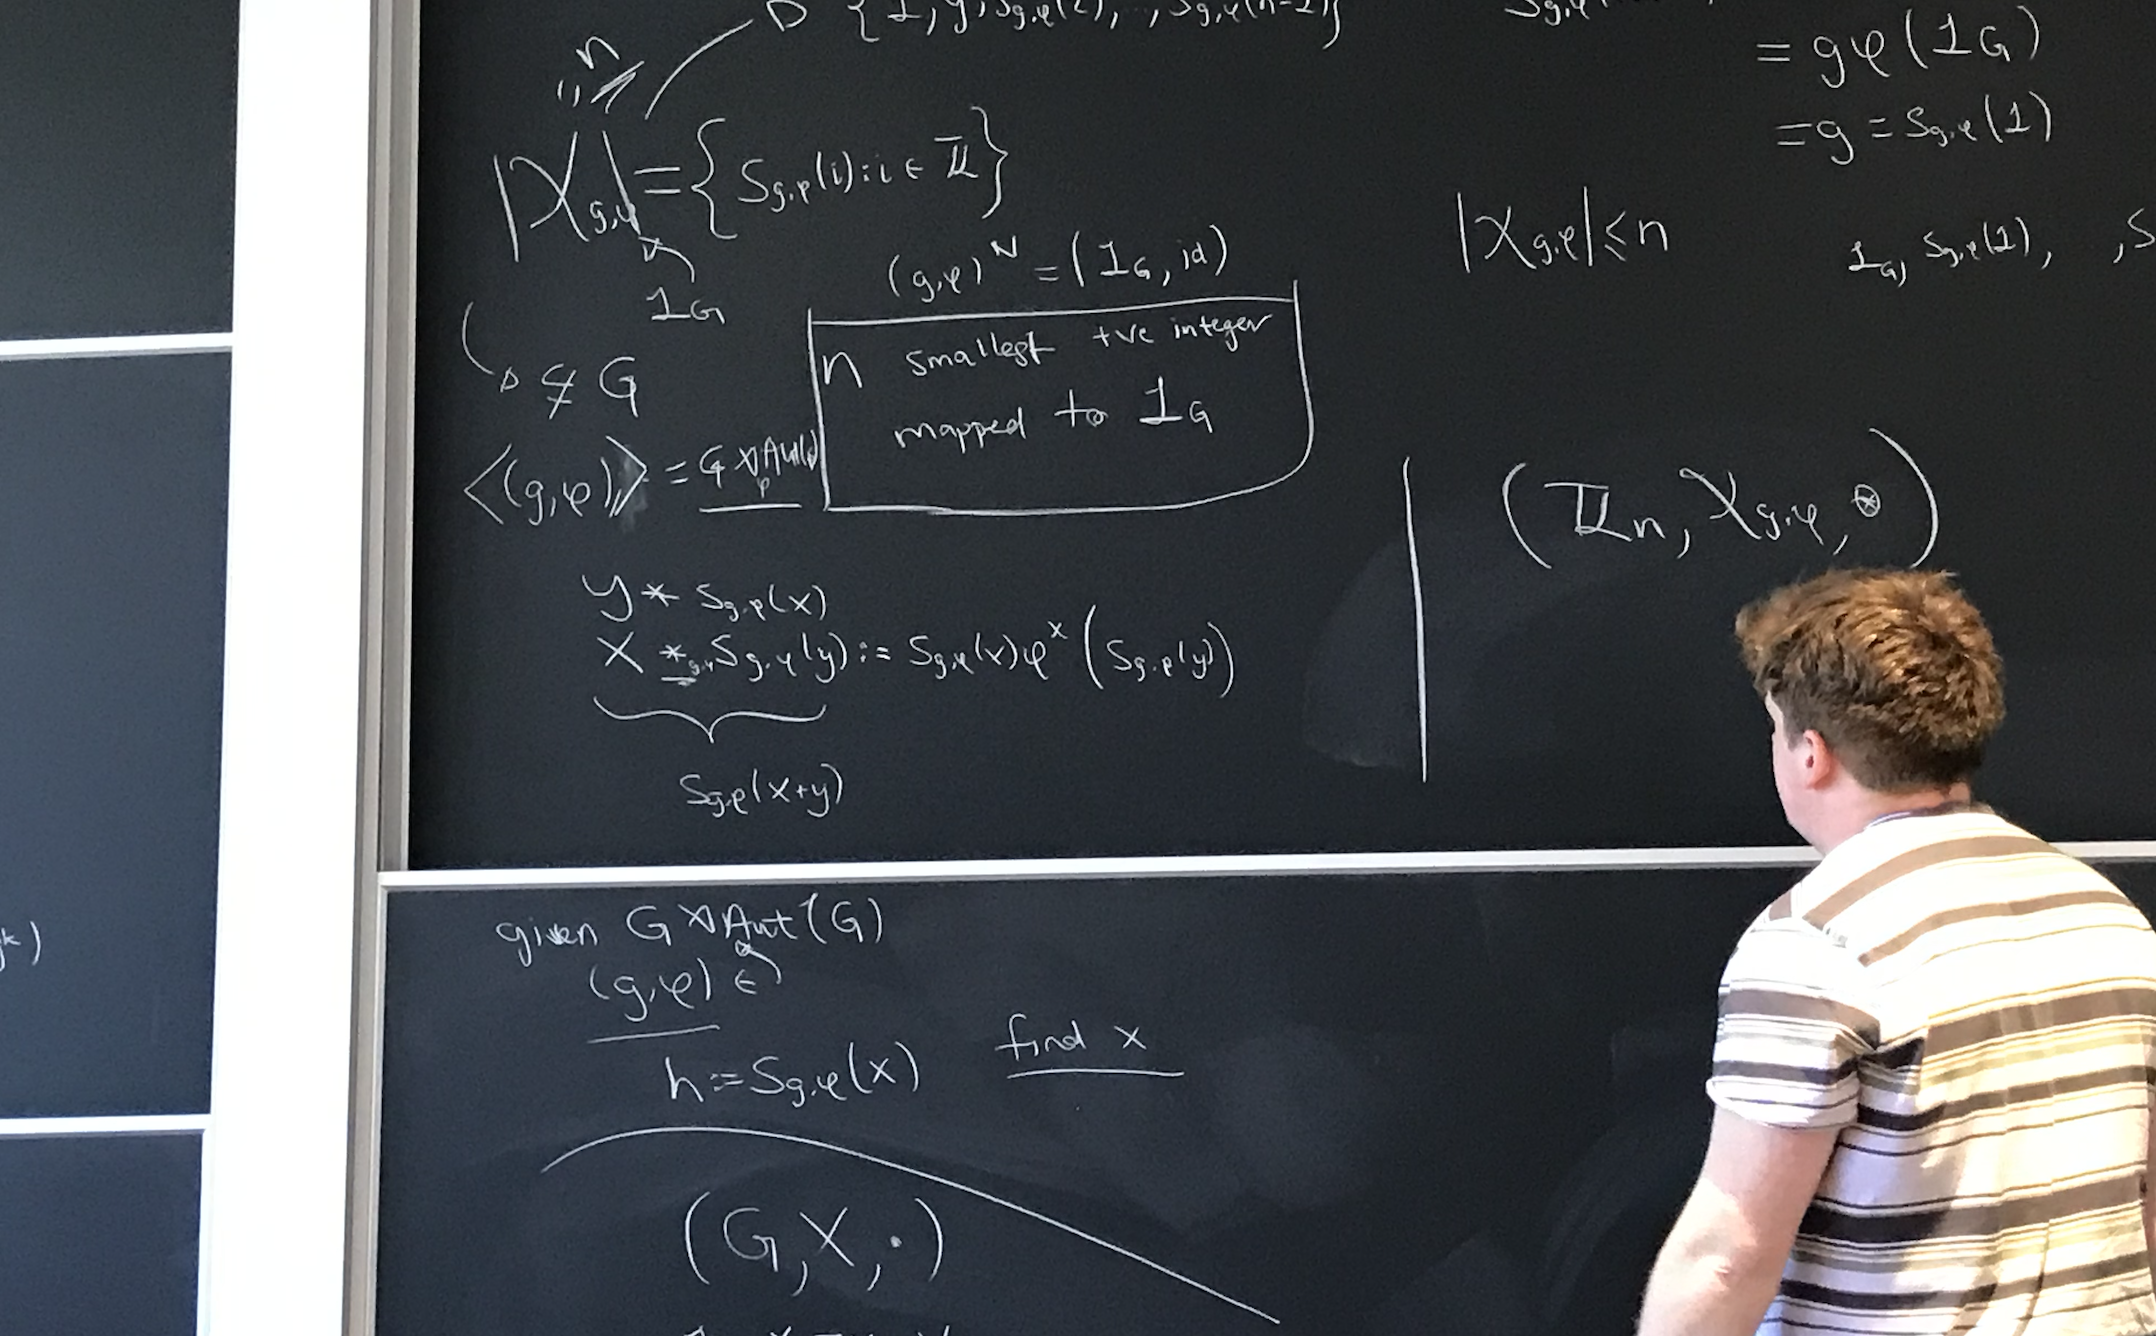 {1, g, S_{g,φ}(2), , S_{g,φ}(n-1)}
n
|X_{g,φ}| = {S_{g,φ}(i) : i ∈ ℤ}
1_G
⊊ G
(g,φ)^N = (1_G, id)
n smallest +ve integer
mapped to 1_G
⟨(g,φ)⟩ = G ⋊_φ Aut(
y * S_{g,φ}(x)
x *_{g,φ} S_{g,φ}(y) := S_{g,φ}(x) φ^x (S_{g,φ}(y))
S_{g,φ}(x+y)
S_{g,φ}
= gφ(1_G)
= g = S_{g,φ}(1)
|X_{g,φ}| ≤ n
1_G, S_{g,φ}(1), , S
(ℤ_n, X_{g,φ}, ⊛)
k)
given G ⋊ Aut(G)
(g,φ) ∈
h = S_{g,φ}(x) find x
(G, X, ·)